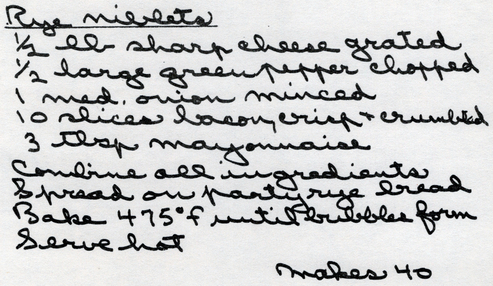 Rye niblets
1/2 lb sharp cheese grated
1/2 large green pepper chopped
1 med. onion minced
10 slices bacon, crisp + crumbled
3 tbsp mayonnaise
Combine all ingredients
Spread on party rye bread
Bake 475°f until bubbles form
Serve hot
makes 40